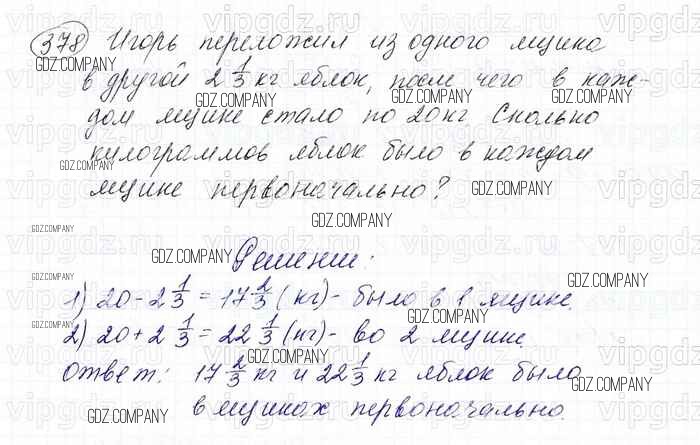 378 Игорь переложил из одного ящика
в другой 2 1/3 кг яблок, после чего в каж-
дом ящике стало по 20 кг Сколько
килограммов яблок было в каждом
ящике первоначально?
Решение:
1) 20 - 2 1/3 = 17 2/3 (кг) - было в 1 ящике.
2) 20 + 2 1/3 = 22 1/3 (кг) - во 2 ящике.
Ответ: 17 2/3 кг и 22 1/3 кг яблок было
в ящиках первоначально.
GDZ.COMPANY
vipgdz.ru